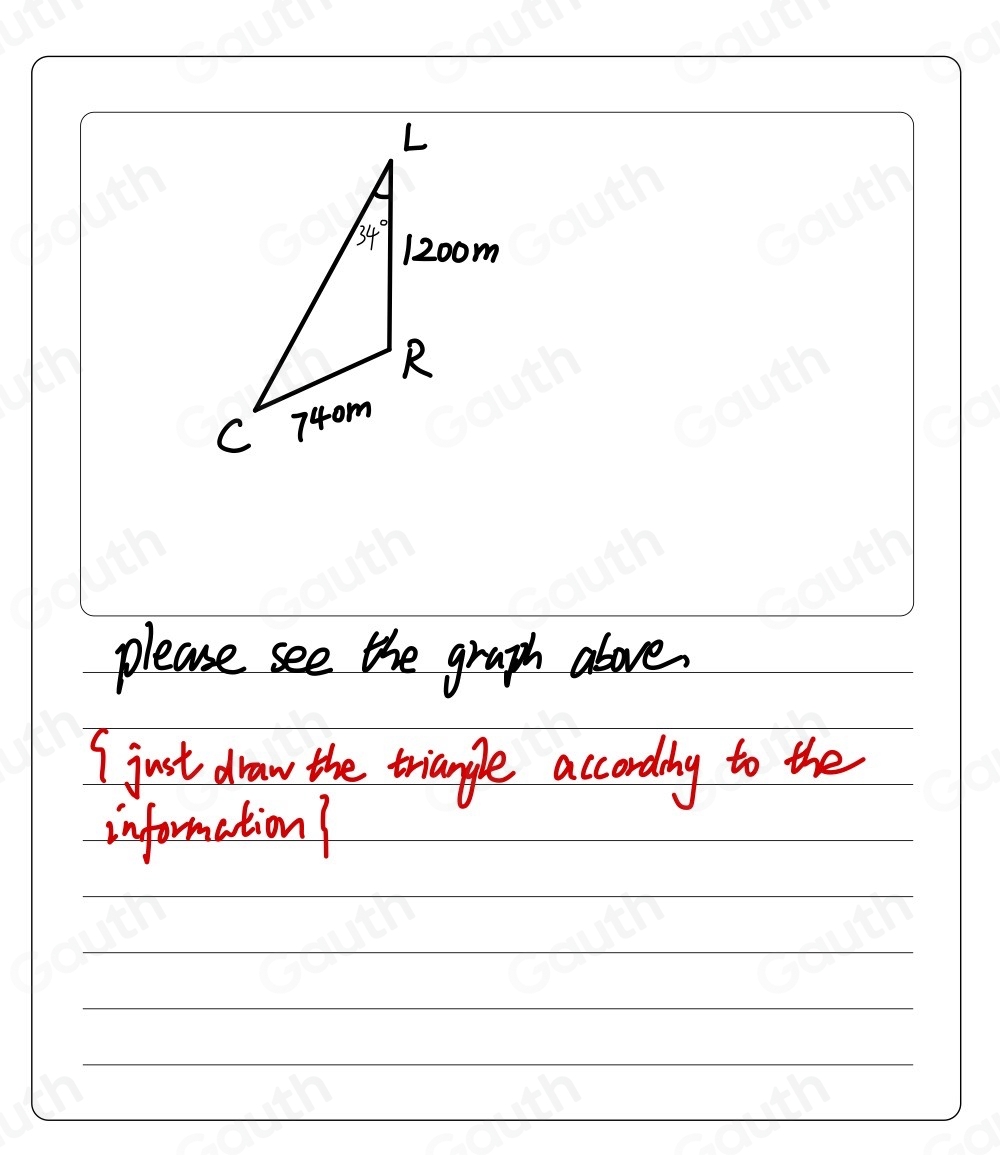 L
34°
1200m
R
740m
C
please see the graph above
{just draw the triangle according to the
information}